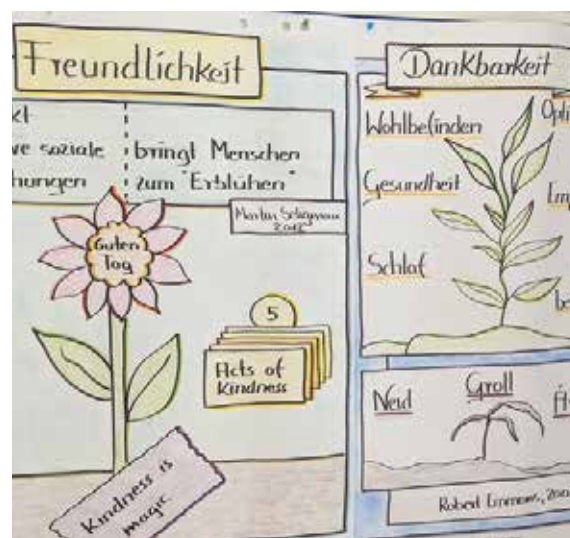 Freundlichkeit
ve soziale
hungen
bringt Menschen
zum "Erblühen"
Martin Seligman
2012
Guten
Tag
5
Acts of
Kindness
Kindness is
magic
Dankbarkeit
Wohlbefinden
Opti
Gesundheit
Em
Schlaf
Neid
Groll
Robert Emmons, 200